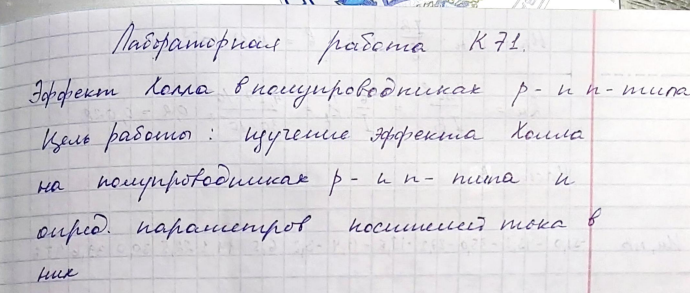 Лабораторная работа К 71.
Эффект Холла в полупроводниках p- и n-типа
Цель работы: изучение эффекта Холла
на полупроводниках p- и n- типа и
опред. параметров носителей тока в
них